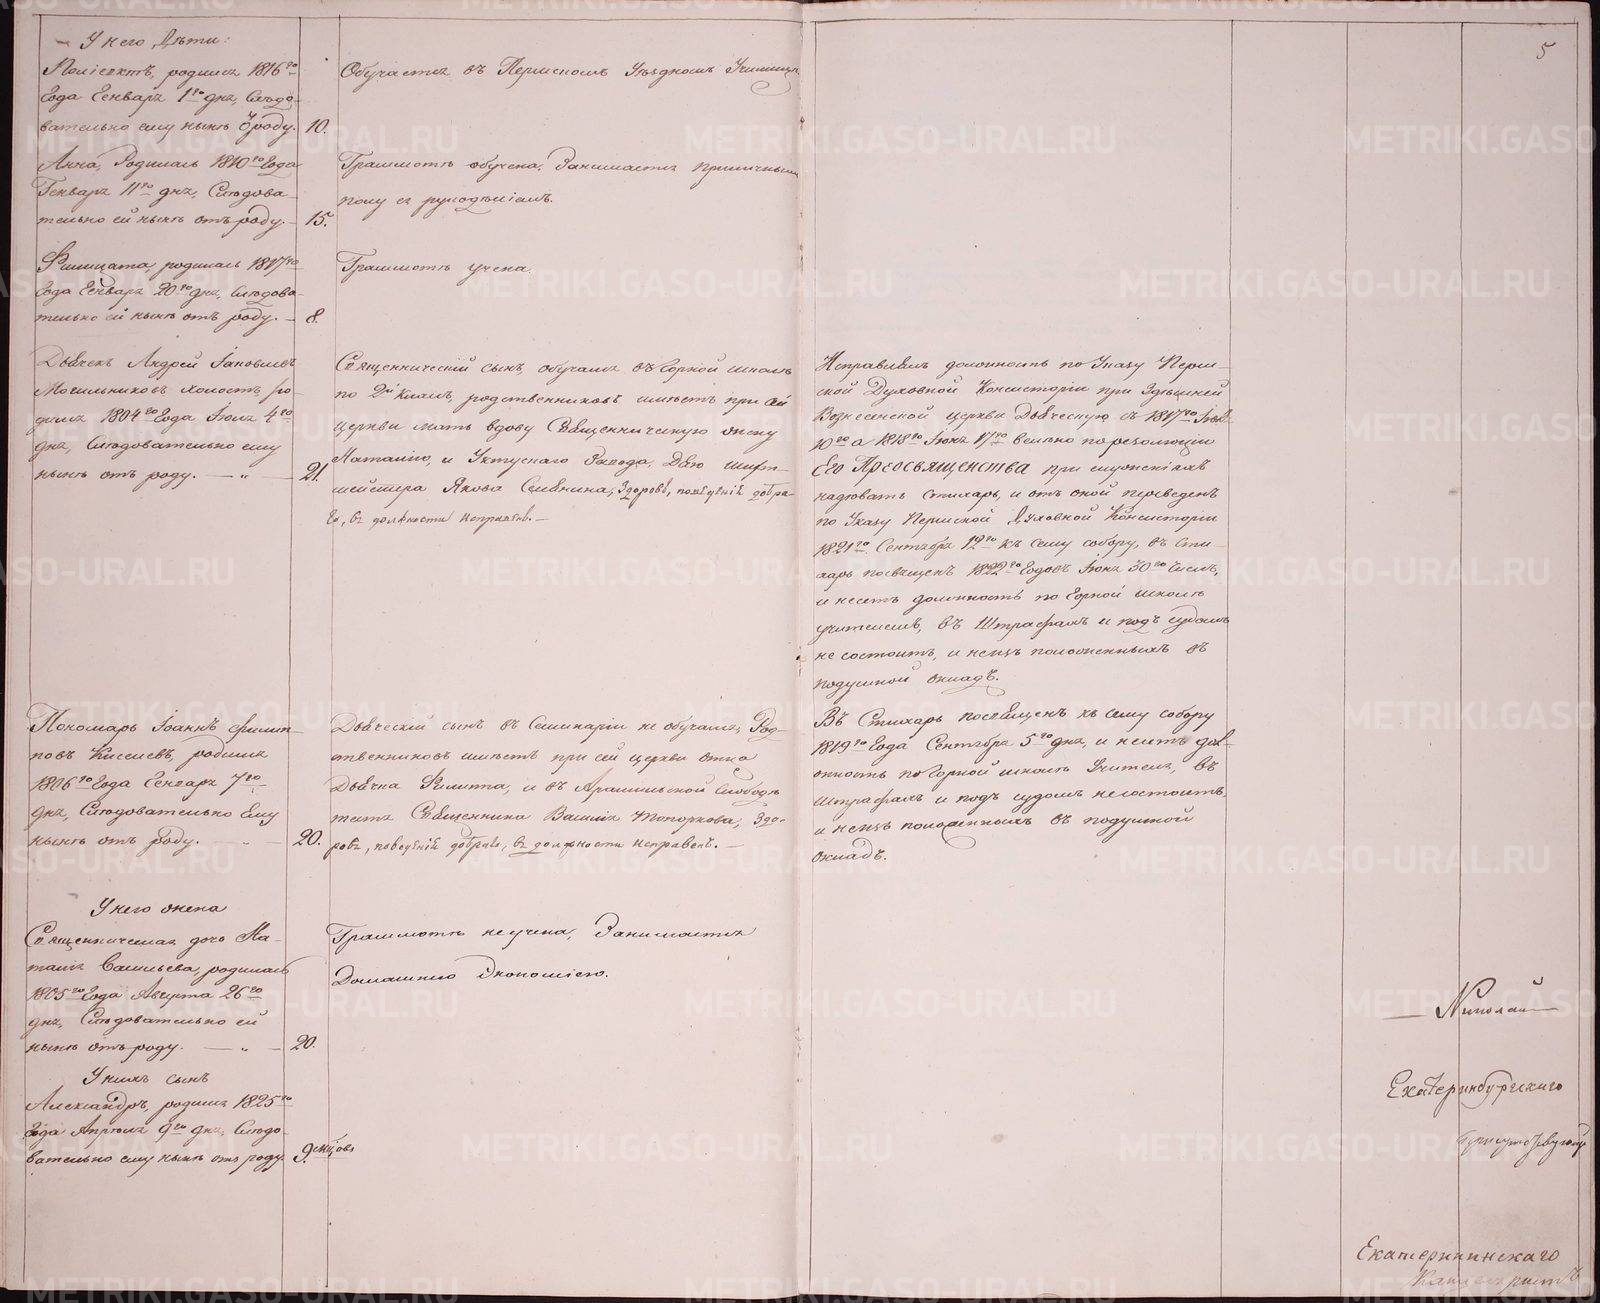 У него Дѣти:
Поліектъ, родился 1816го
Года Генваря 1го дня, Слѣдо-
вательно ему нынѣ от роду. 10.
Обучается въ Пермскомъ Уѣздномъ Училищѣ
Анна, Родилась 1810го Года
Генваря 11го дня, Слѣдова-
тельно ей нынѣ отъ роду. — 15.
Грамотѣ обучена, Занимается приличнымъ
полу ея рукодѣліямъ.
Филицата, родилась 1817го
Года Генваря 20го дня, слѣдова-
тельно ей нынѣ отъ роду. — 8.
Грамотѣ учена.
Дьячекъ Андрей Іаковлевъ
Могильниковъ холостъ, ро-
дился 1804го Года Іюля 4го
дня, Слѣдовательно ему
нынѣ отъ роду. — „ — 21.
Священническій сынъ, обучался въ Горной школѣ
по 2й Классъ, родственниковъ имѣетъ при сей
церкви мать вдову Священническую жену
Наталію, и Уктусскаго Завода, Дядю шихт-
мейстера Якова
Здоровъ, поведенія добра-
го, въ должности исправенъ. —
Исправлялъ должность по Указу Перм-
ской Духовной Консисторіи при Здѣшней
Вознесенской церкви Дьяческую съ 1817го Іюля
10го а 1818го Іюня 17го велѣно по резолюціи
Его Преосвященства при служеніяхъ
надѣвать стихарь, и отъ оной переведенъ
по Указу Пермской Духовной Консисторіи
1821го Сентября 12го къ сему собору, въ сти-
харь посвященъ 1822го Годовъ Іюня 30го числъ,
и несетъ должность по Горной школѣ
учителемъ, въ Штрафахъ и подъ судомъ
не состоитъ, и не изъ положенныхъ въ
подушной окладъ.
Пономарь Іоаннъ Филип-
повъ Киселевъ, родился
1806го Года Генваря 7го
дня, Слѣдовательно Ему
нынѣ отъ роду. — 20.
Дьяческій сынъ въ Семинаріи не обучался, Род-
ственниковъ имѣетъ при сей церкви отца
Дьячка Филиппа, и въ Арамильской Слободѣ
тестя Священника Василія Топоркова, Здо-
ровъ, поведенія добраго, въ должности исправенъ. —
Въ Стихарь посвященъ къ сему собору
1819го Года Сентября 5го дня, и несетъ дол-
жность по Горной школѣ Учителя, въ
штрафахъ и подъ судомъ не состоитъ,
и не изъ положенныхъ въ подушной
окладъ.
У него жена
Священническая дочь На-
талія Васильева, родилась
1805го Года Августа 26го
дня, Слѣдовательно ей
нынѣ отъ роду. — „ — 20.
Грамотѣ не учена, Занимается
Домашнею Экономіею.
У нихъ сынъ
Александръ, родился 1825го
Года Апрѣля 9го дня, Слѣдо-
вательно ему нынѣ отъ роду. 9. мѣсцовъ
5
Николай
Екатеринбургскаго
Присутствующій
Екатерининскаго
METRIKI.GASO-URAL.RU